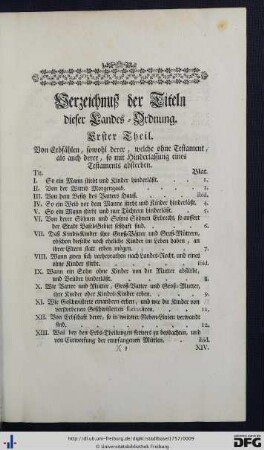 Verzeichnuß der Titeln
dieser Landes-Ordnung.
Erster Theil.
Von Erbfählen, sowohl derer, welche ohne Testament,
als auch derer, so mit Hinderlassung eines
Testaments absterben.
Tit. Blat.
I. So ein Mann stirbt und Kinder hinderläßt. 1.
II. Von der Wittib Morgengaab. 1.
III. Von dem Besitz des Vatters Hauß. ibid.
IV. So ein Weib vor dem Manne stirbt und Kinder hinderläßt. 4.
V. So ein Mann stirbt und nur Töchtern hinderläßt. 5.
VI. Von derer Söhnen und Sohns Söhnen Erbrecht, so ausser
der Stadt Basel seßhaft sind. 6.
VII. Daß Kindskinder ihre Groß-Vätter und Groß-Müttern,
obschon dieselbe noch eheliche Kinder im Leben haben, an
ihrer Eltern statt erben mögen. 7.
VIII. Wann zwey sich verheyrathen nach Landes-Recht, und eines
ohne Kinder stirbt. ibid.
IX. Wann ein Sohn ohne Kinder vor der Mutter abstirbt,
und Brüder hinderläßt. 8.
X. Wie Vatter und Mutter, Groß-Vatter und Groß-Mutter,
ihre Kinder oder Kinds-Kinder erben.
XI. Wie Geschwisterte einandern erben, und wie die Kinder von
verstorbenen Geschwisterten
XII. Von Erbschaft derer, so in weiterer Neben-Linien verwandt
sind. 12.
XIII. Was bey den Erbs-Theilungen ferners zu beobachten, und
von Einwerfung der empfangenen Mitteln. ibid.
XIV.
http://dl.ub.uni-freiburg.de/diglit/stadtbasel1757/0009
© Universitätsbibliothek Freiburg